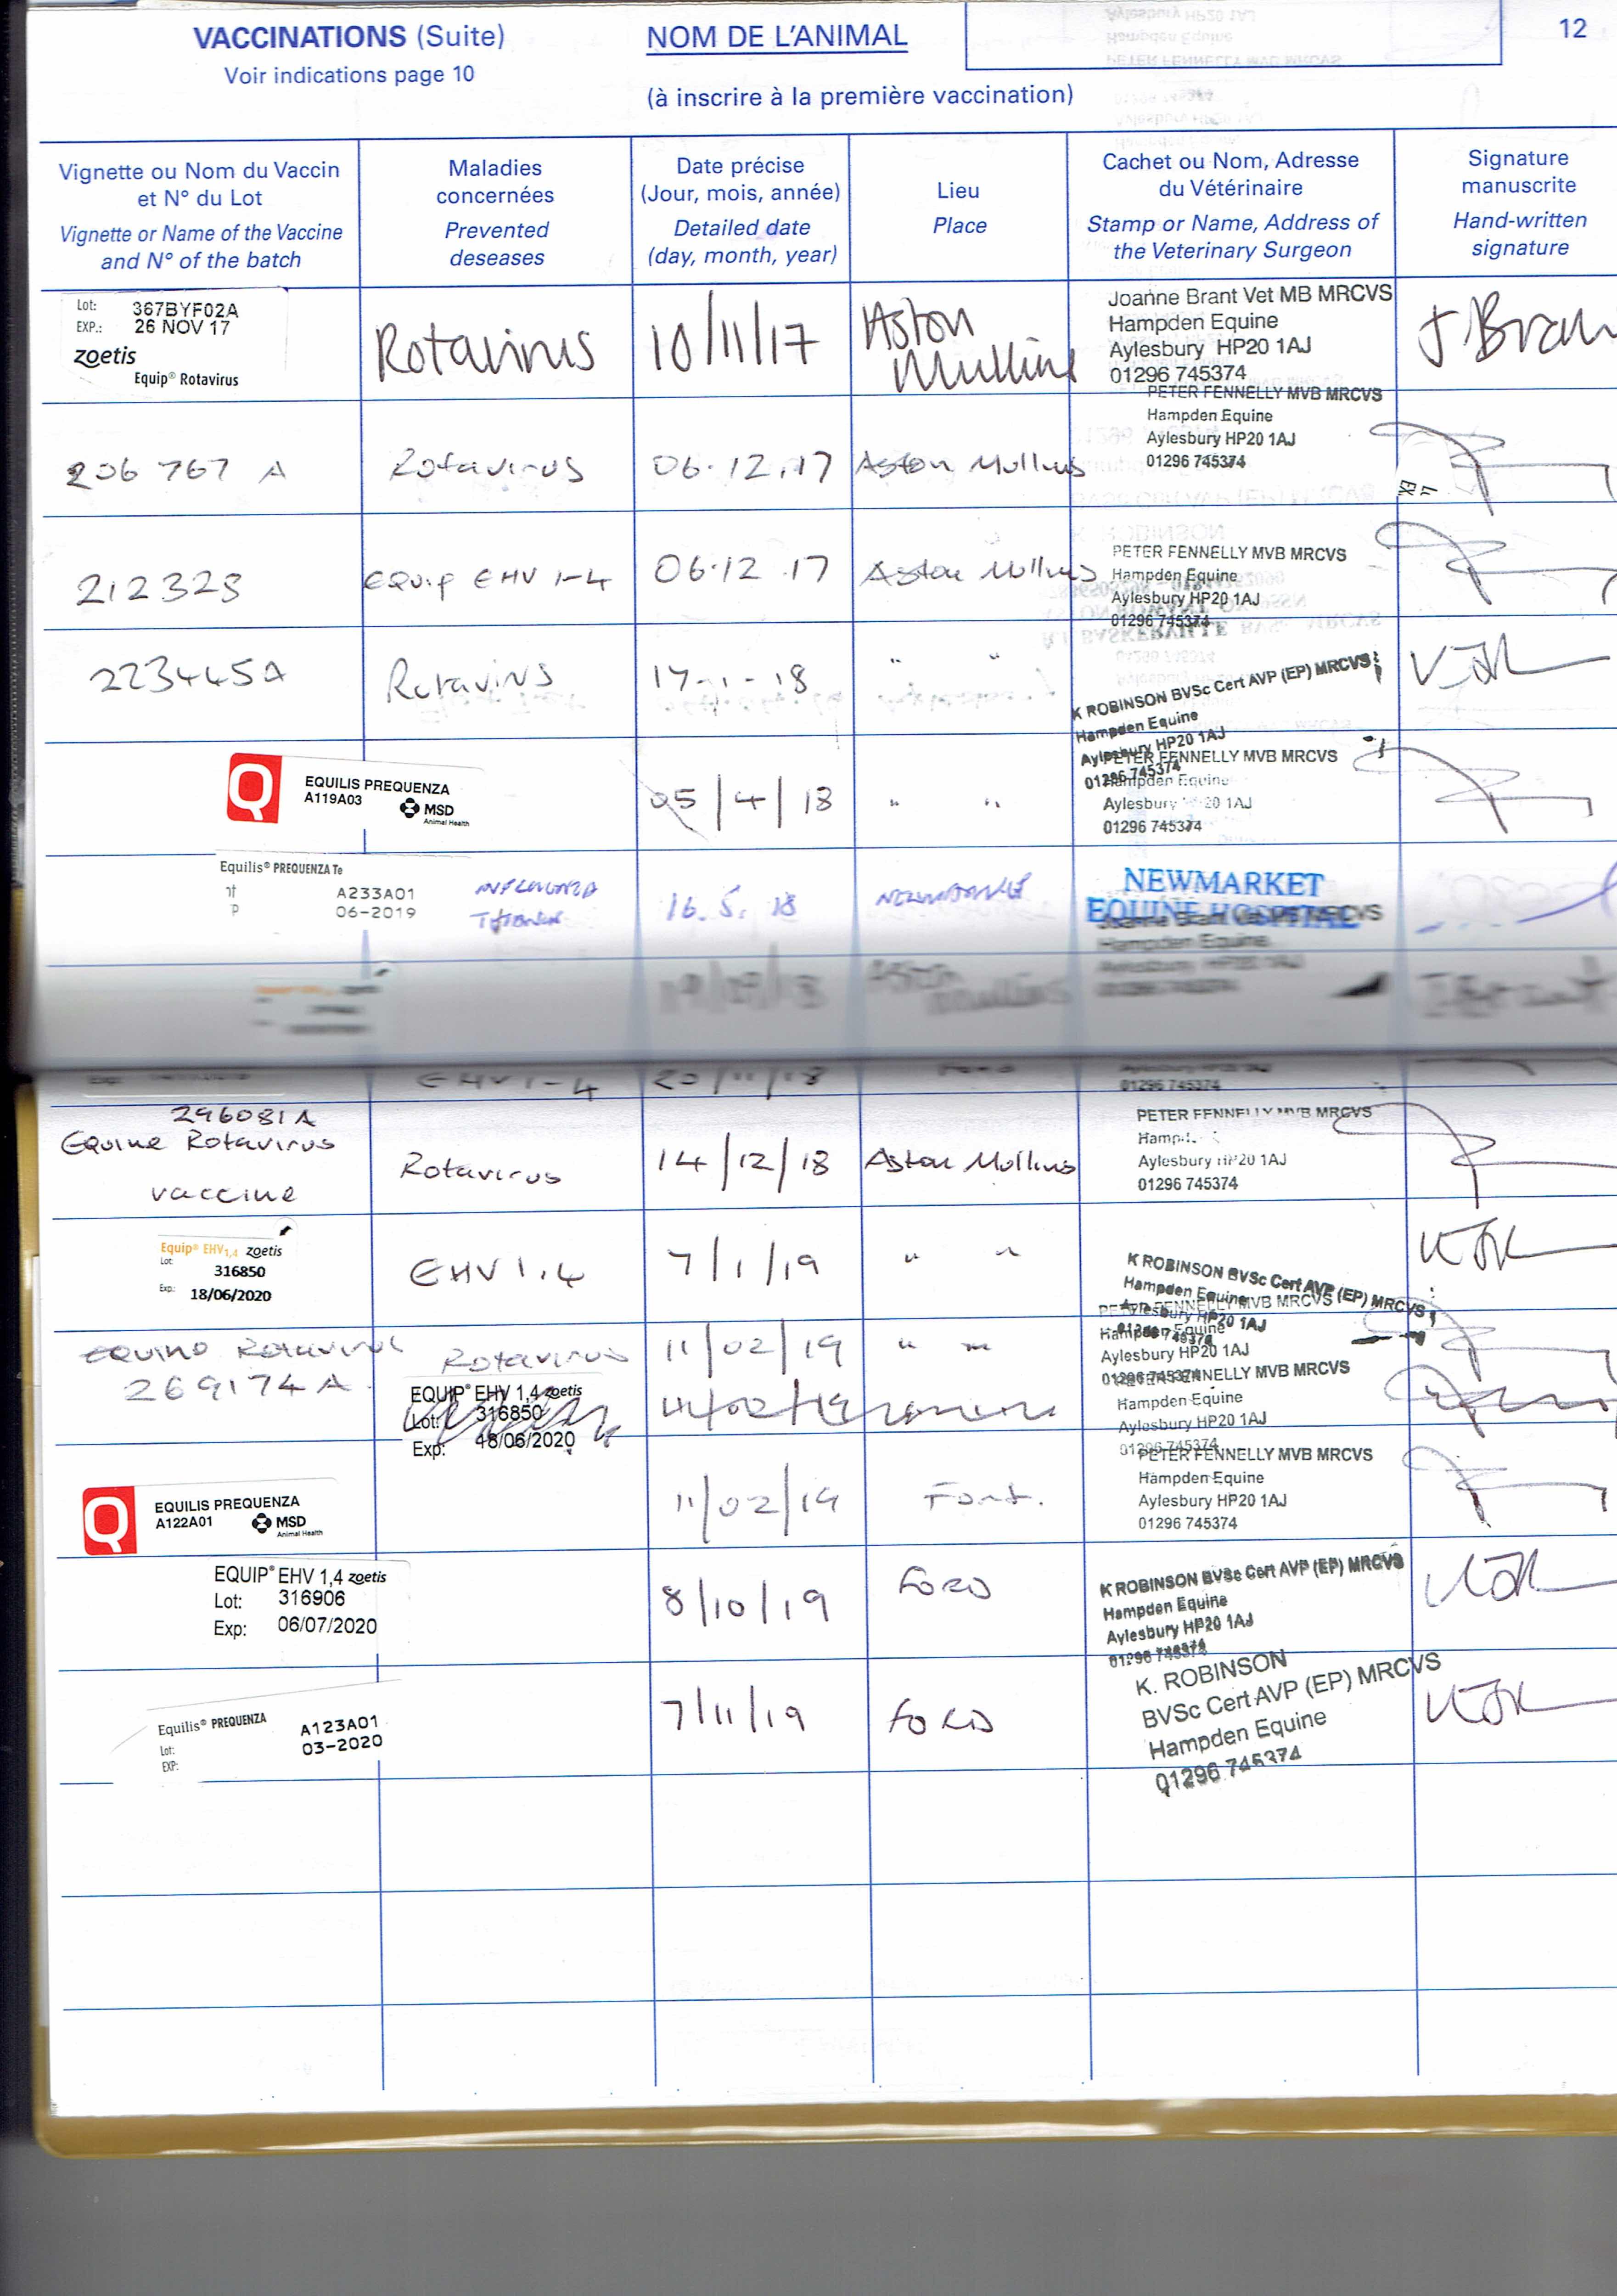 VACCINATIONS (Suite)
Voir indications page 10
NOM DE L'ANIMAL
(à inscrire à la première vaccination)
12
Vignette ou Nom du Vaccin
et N° du Lot
Vignette or Name of the Vaccine
and N° of the batch
Maladies
concernées
Prevented
deseases
Date précise
(Jour, mois, année)
Detailed date
(day, month, year)
Lieu
Place
Cachet ou Nom, Adresse
du Vétérinaire
Stamp or Name, Address of
the Veterinary Surgeon
Signature
manuscrite
Hand-written
signature
Lot: 367BYF02A
EXP.: 26 NOV 17
zoetis
Equip® Rotavirus
Rotavirus
10/11/17
Aston
Mullins
Joanne Brant Vet MB MRCVS
Hampden Equine
Aylesbury HP20 1AJ
01296 745374
J Bran
206 767 A
Rotavirus
06.12.17
Aston Mullins
PETER FENNELLY MVB MRCVS
Hampden Equine
Aylesbury HP20 1AJ
01296 745374
212323
Equip EHV 1-4
06.12.17
Aston Mullins
PETER FENNELLY MVB MRCVS
Hampden Equine
Aylesbury HP20 1AJ
01296 745374
223445A
Rotavirus
17-1-18
" "
K ROBINSON BVSc Cert AVP (EP) MRCVS
Hampden Equine
Aylesbury HP20 1AJ
01296 745374
Q
EQUILIS PREQUENZA
A119A03
MSD
Animal Health
05/4/18
" "
PETER FENNELLY MVB MRCVS
Hampden Equine
Aylesbury HP20 1AJ
01296 745374
Equilis® PREQUENZA Te
A233A01
06-2019
16.5.18
NEWMARKET
EQUINE HOSPITAL
Joanne Brant Vet MB MRCVS
Hampden Equine
Aston
Mullins
EHV 1-4
20/11/18
01296 745374
296081A
Equine Rotavirus
vaccine
Rotavirus
14/12/18
Aston Mullins
PETER FENNELLY MVB MRCVS
Aylesbury HP20 1AJ
01296 745374
Equip® EHV1,4 zoetis
Lot: 316850
Exp: 18/06/2020
EHV 1.4
7/1/19
" "
K ROBINSON BVSc Cert AVP (EP) MRCVS
Hampden Equine
Aylesbury HP20 1AJ
01296 745374
Equino Rotavirus
269174A
Rotavirus
11/02/19
" "
PETER FENNELLY MVB MRCVS
Hampden Equine
Aylesbury HP20 1AJ
01296 745374
EQUIP® EHV 1,4 zoetis
Lot: 316850
Exp: 18/06/2020
11/02/19
PETER FENNELLY MVB MRCVS
Hampden Equine
Aylesbury HP20 1AJ
01296 745374
Q
EQUILIS PREQUENZA
A122A01
MSD
Animal Health
11/02/19
Ford.
PETER FENNELLY MVB MRCVS
Hampden Equine
Aylesbury HP20 1AJ
01296 745374
EQUIP® EHV 1,4 zoetis
Lot: 316906
Exp: 06/07/2020
8/10/19
FORD
K ROBINSON BVSc Cert AVP (EP) MRCVS
Hampden Equine
Aylesbury HP20 1AJ
01296 745374
Equilis® PREQUENZA
Lot: A123A01
EXP: 03-2020
7/11/19
FORD
K. ROBINSON
BVSc Cert AVP (EP) MRCVS
Hampden Equine
01296 745374